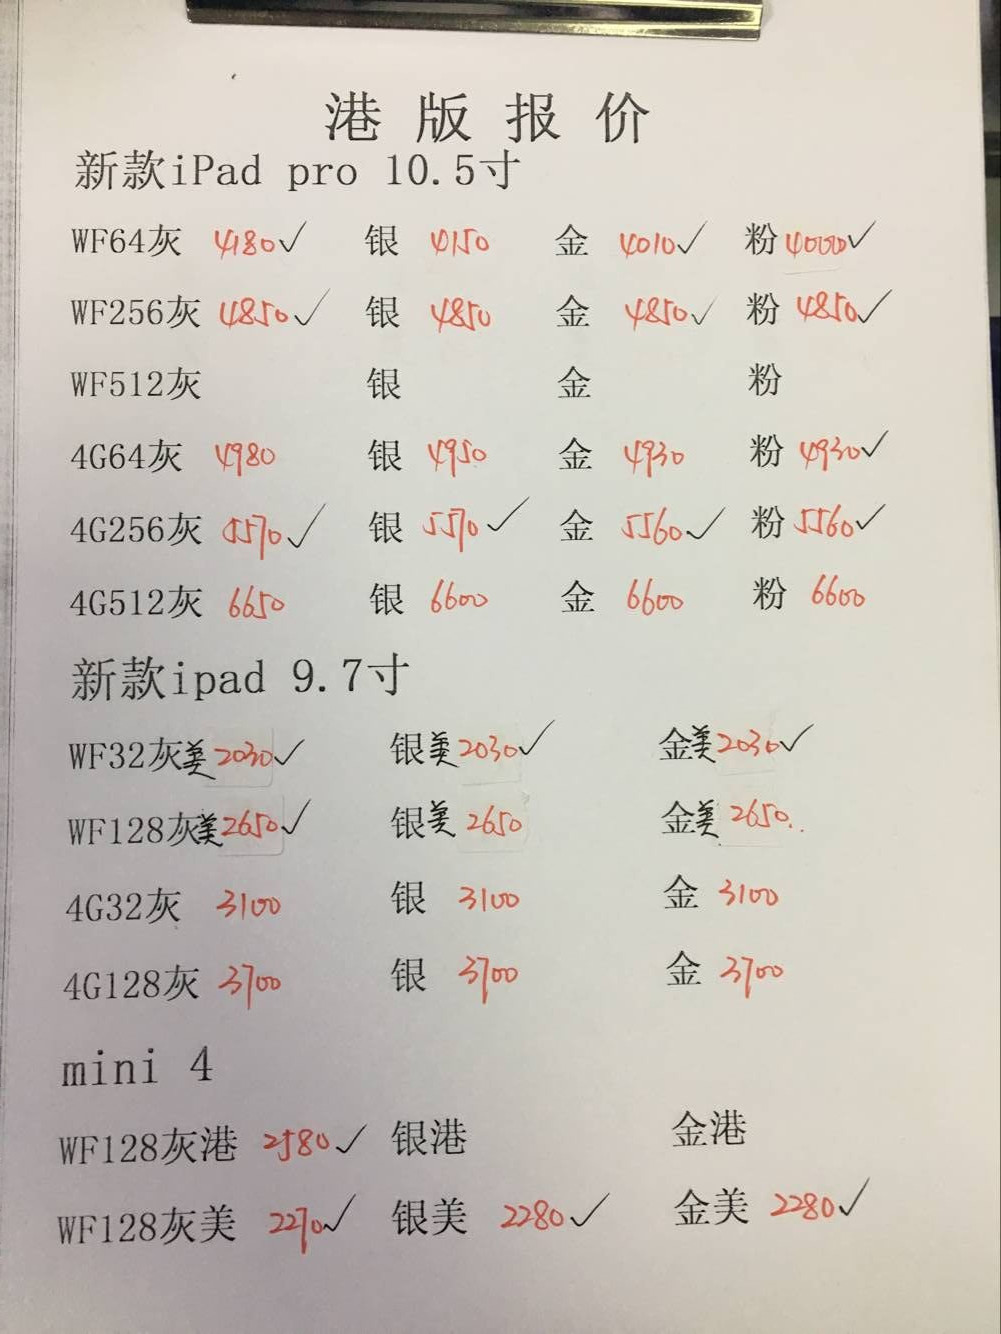 港版报价
新款iPad pro 10.5寸
WF64灰 4180✓ 银 4150 金 4010✓ 粉 4000✓
WF256灰 4850✓ 银 4850 金 4850✓ 粉 4850✓
WF512灰 银 金 粉
4G64灰 4980 银 4950 金 4930 粉 4930✓
4G256灰 5570✓ 银 5570✓ 金 5560✓ 粉 5560✓
4G512灰 6650 银 6600 金 6600 粉 6600
新款ipad 9.7寸
WF32灰美 2030✓ 银美 2030✓ 金美 2030✓
WF128灰美 2650✓ 银美 2650 金美 2650..
4G32灰 3100 银 3100 金 3100
4G128灰 3700 银 3700 金 3700
mini 4
WF128灰港 2580✓ 银港 金港
WF128灰美 2270✓ 银美 2280✓ 金美 2280✓